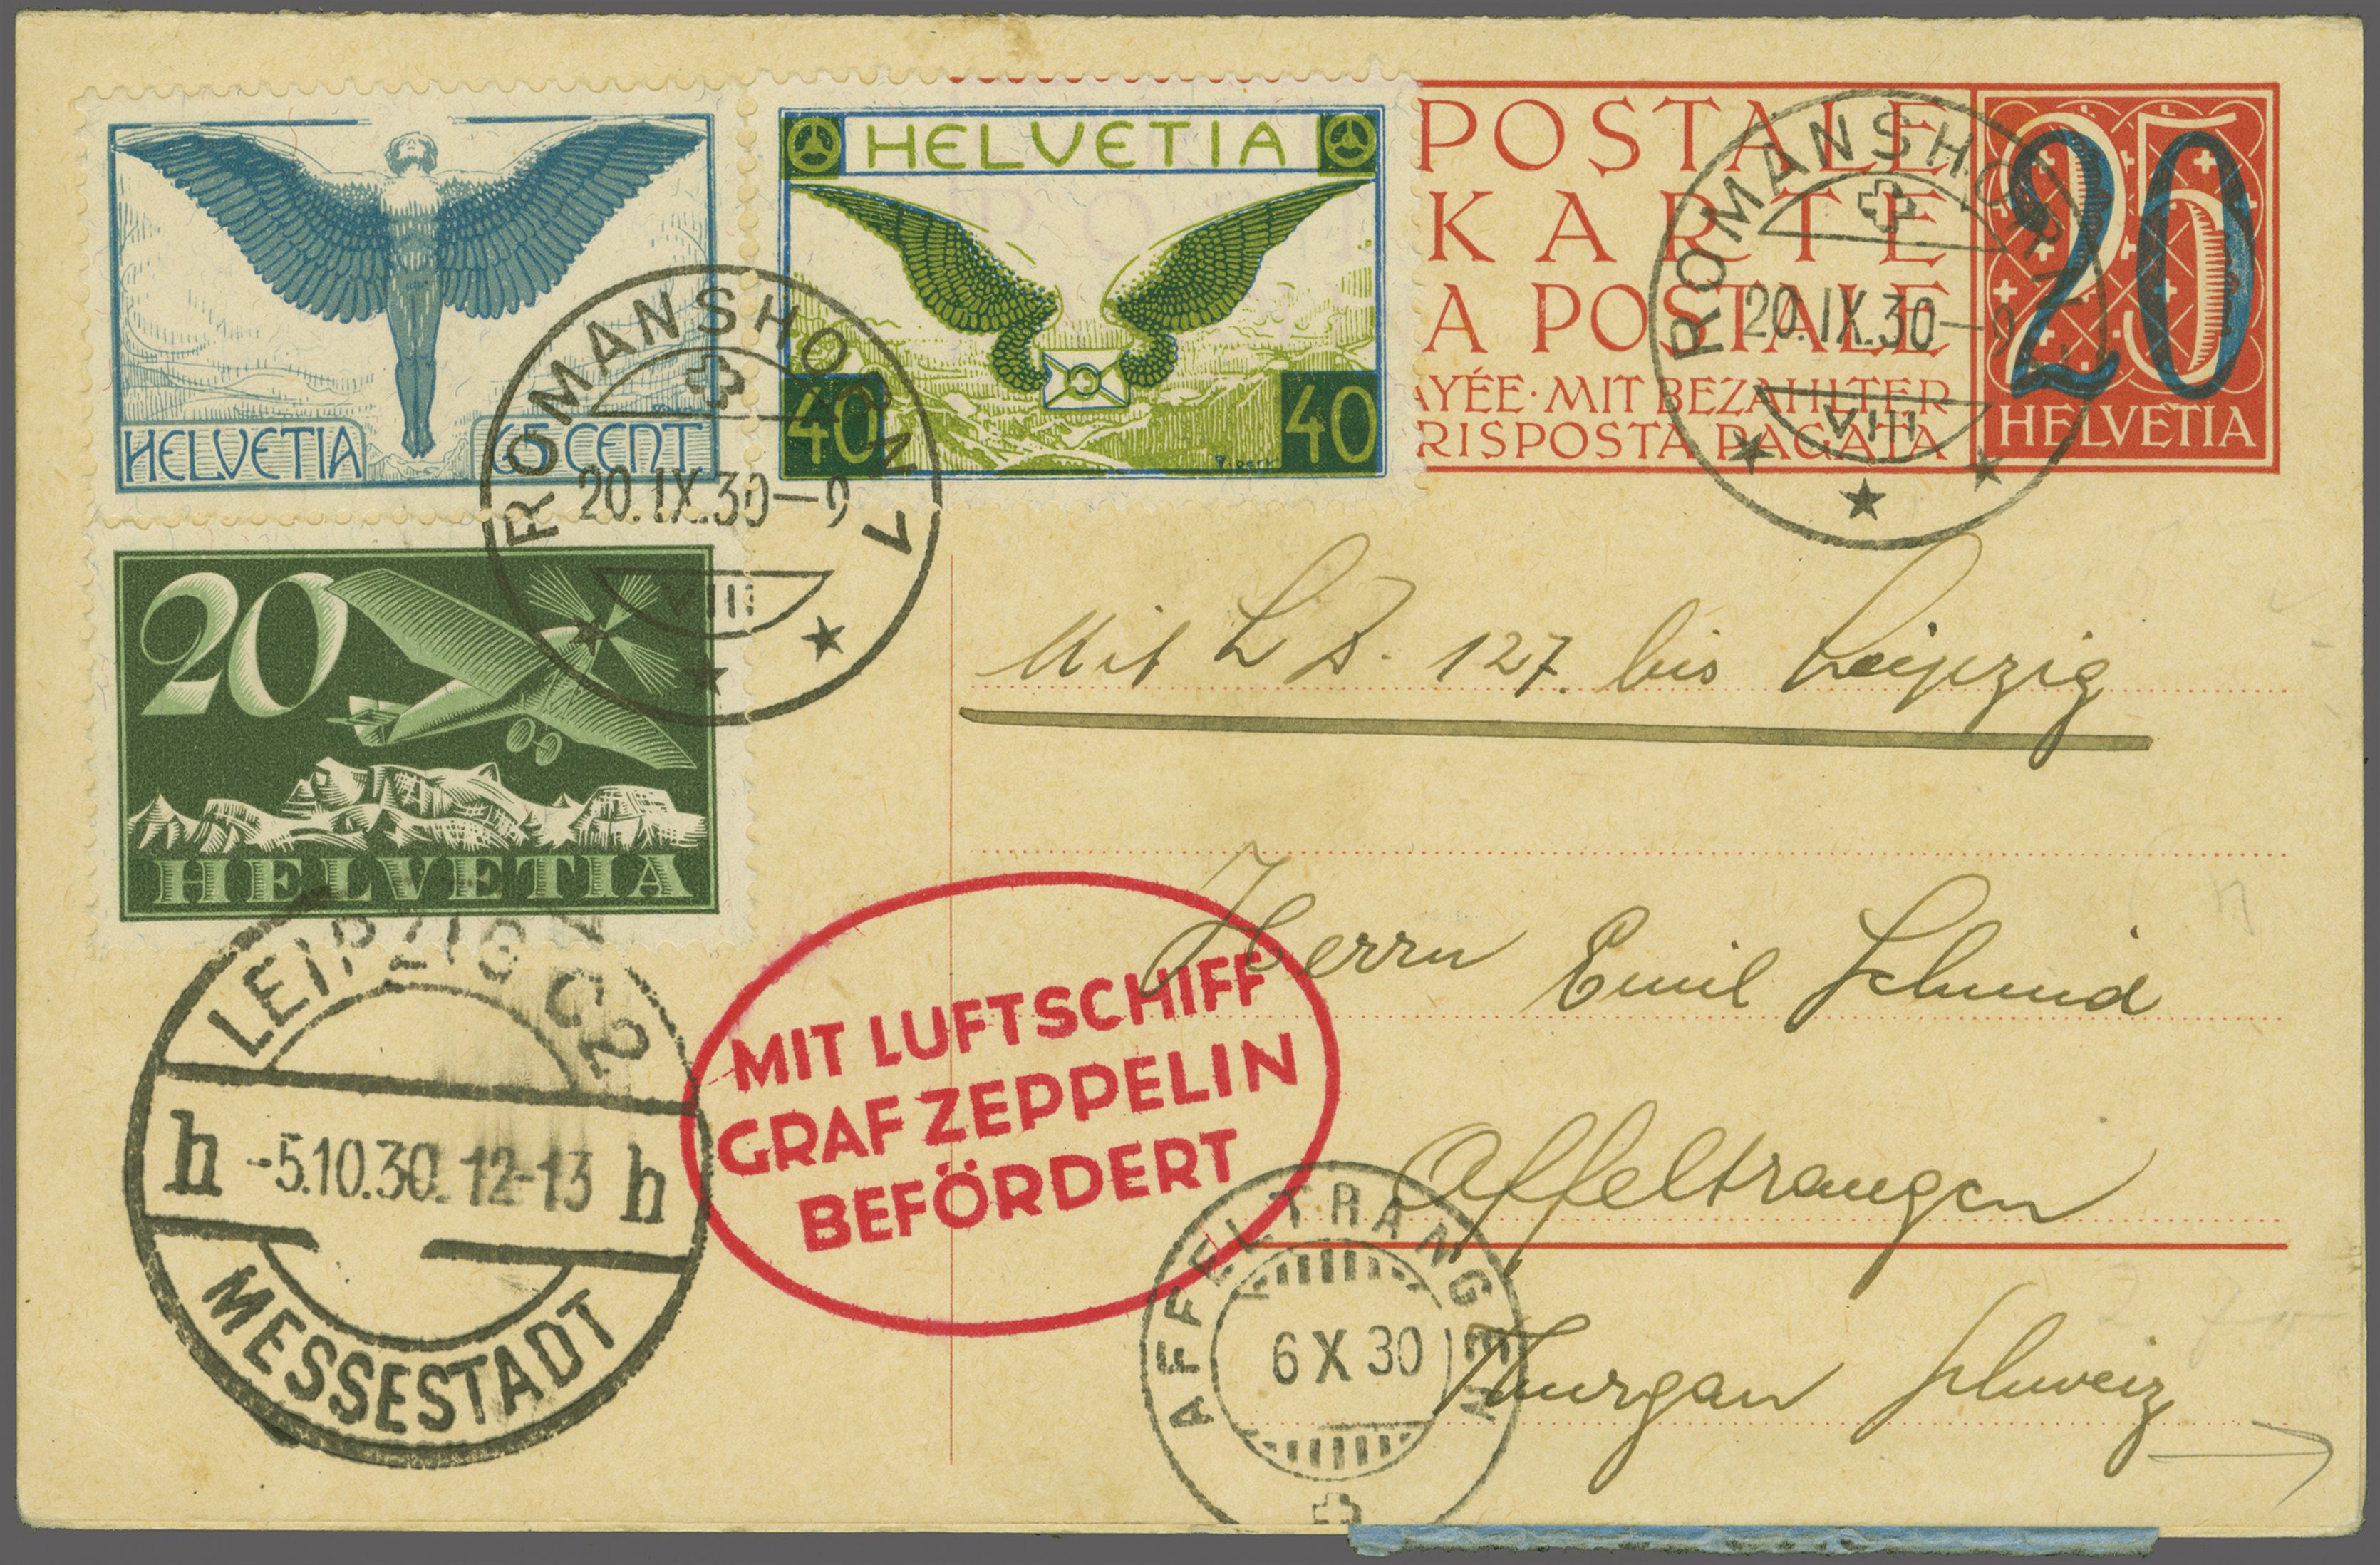 HELVETIA
65 CENT.
HELVETIA
40
40
POSTALE
KARTE
A POSTALE
AYÉE · MIT BEZAHLTER
RISPOSTA PAGATA
25
20
HELVETIA
ROMANSHORN
20.IX.30—9
VIII
ROMANSHORN
20.IX.30—9
VIII
20
HELVETIA
Mit L Z. 127. bis Leipzig
Herrn Emil Schmid
Affeltrangen
Thurgau Schweiz
MIT LUFTSCHIFF
GRAF ZEPPELIN
BEFÖRDERT
LEIPZIG C2
h -5.10.30. 12-13 h
MESSESTADT
AFFELTRANGEN
6 X 30